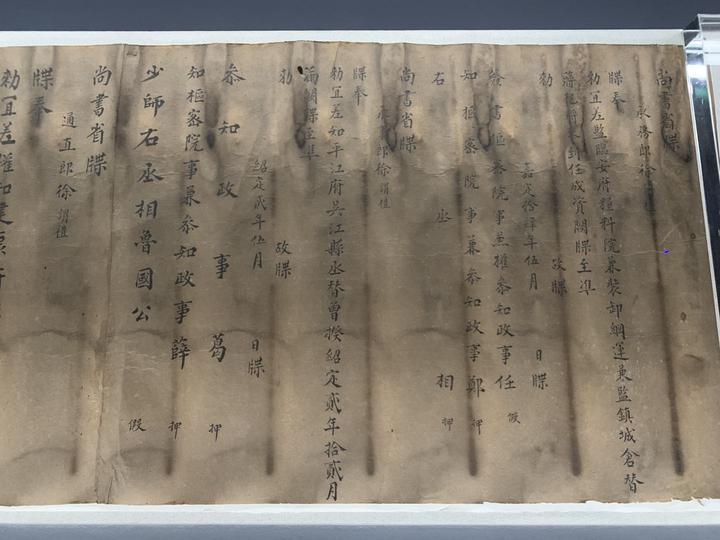 尚書省牒
承務郎徐謂禮
牒奉
勑宜差監臨安府糧料院兼裝卸綱運兼監鎮城倉替
蔣杞將來到任成資闕牒至準
勑
故牒
嘉定拾肆年伍月 日牒
簽書樞密院事兼權參知政事任 假
知樞密院事兼參知政事鄭 押
右丞相 押
尚書省牒
承事郎徐謂禮
牒奉
勑宜差知平江府吳江縣丞替曾揆紹定貳年拾貳月
滿闕牒至準
勑
故牒
紹定貳年伍月 日牒
參知政事葛 押
知樞密院事兼參知政事薛 押
少師右丞相魯國公 假
尚書省牒
通直郎徐謂禮
牒奉
勑宜差權知建康府